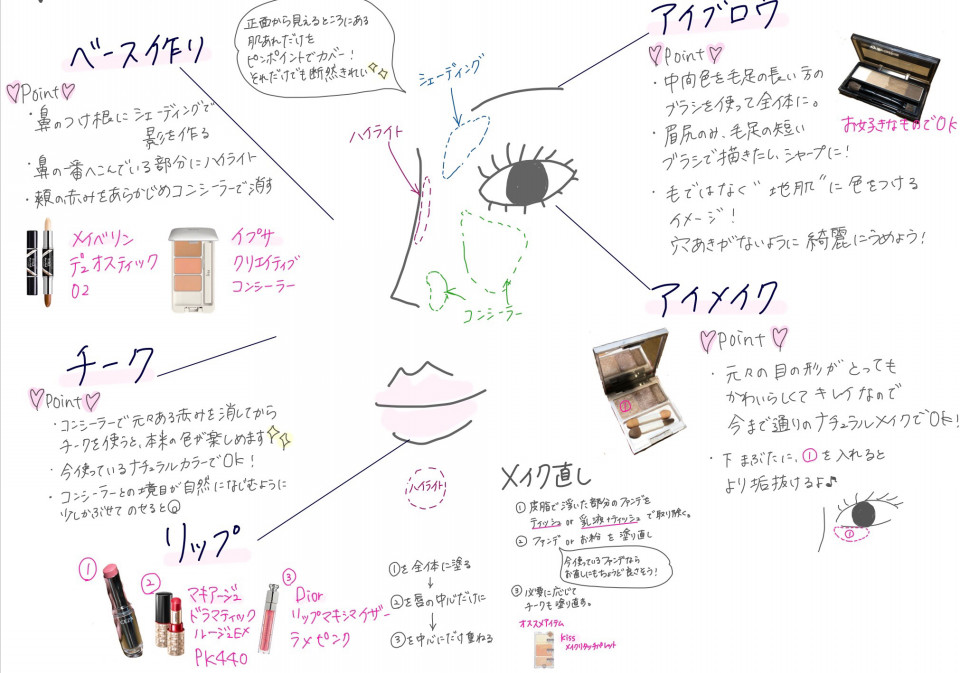 正面から見えるところにある
肌あれだけを
ピンポイントでカバー!
それだけでも断然きれい
ベース作り
Point
・鼻のつけ根にシェーディングで
影を作る
・鼻の一番へこんでいる部分にハイライト
・頬の赤みをあらかじめコンシーラーで消す
メイベリン
デュオスティック
02
イプサ
クリエイティブ
コンシーラー
シェーディング
ハイライト
コンシーラー
アイブロウ
Point
・中間色を毛足の長い方の
ブラシを使って全体に。
・眉尻のみ、毛足の短い
ブラシで描きたし、シャープに!
・毛ではなく"地肌"に色をつける
イメージ!
穴あきがないように綺麗にうめよう!
お好きなものでOK
アイメイク
Point
・元々の目の形がとっても
かわいらしくてキレイなので
今まで通りのナチュラルメイクでOK!
・下まぶたに、①を入れると
より垢抜けるよ♪
①
①
チーク
Point
・コンシーラーで元々ある赤みを消してから
チークを使うと、本来の色が楽しめます
・今使っているナチュラルカラーでOK!
・コンシーラーとの境目が自然になじむように
少しかぶせてのせると◎
ハイライト
リップ
①
②
マキアージュ
ドラマティック
ルージュEX
PK440
③
Dior
リップマキシマイザー
ラメピンク
①を全体に塗る
↓
②を唇の中心だけに
↓
③を中心にだけ重ねる
メイク直し
① 皮脂で浮いた部分のファンデを
ティッシュ or 乳液+ティッシュ で取り除く。
② ファンデ or お粉 を 塗り直し
今使っているファンデなら
お直しにもちょうど良さそう!
③ 必要に応じて
チークも塗り直す。
オススメアイテム
kiss
メイクリタッチパレット